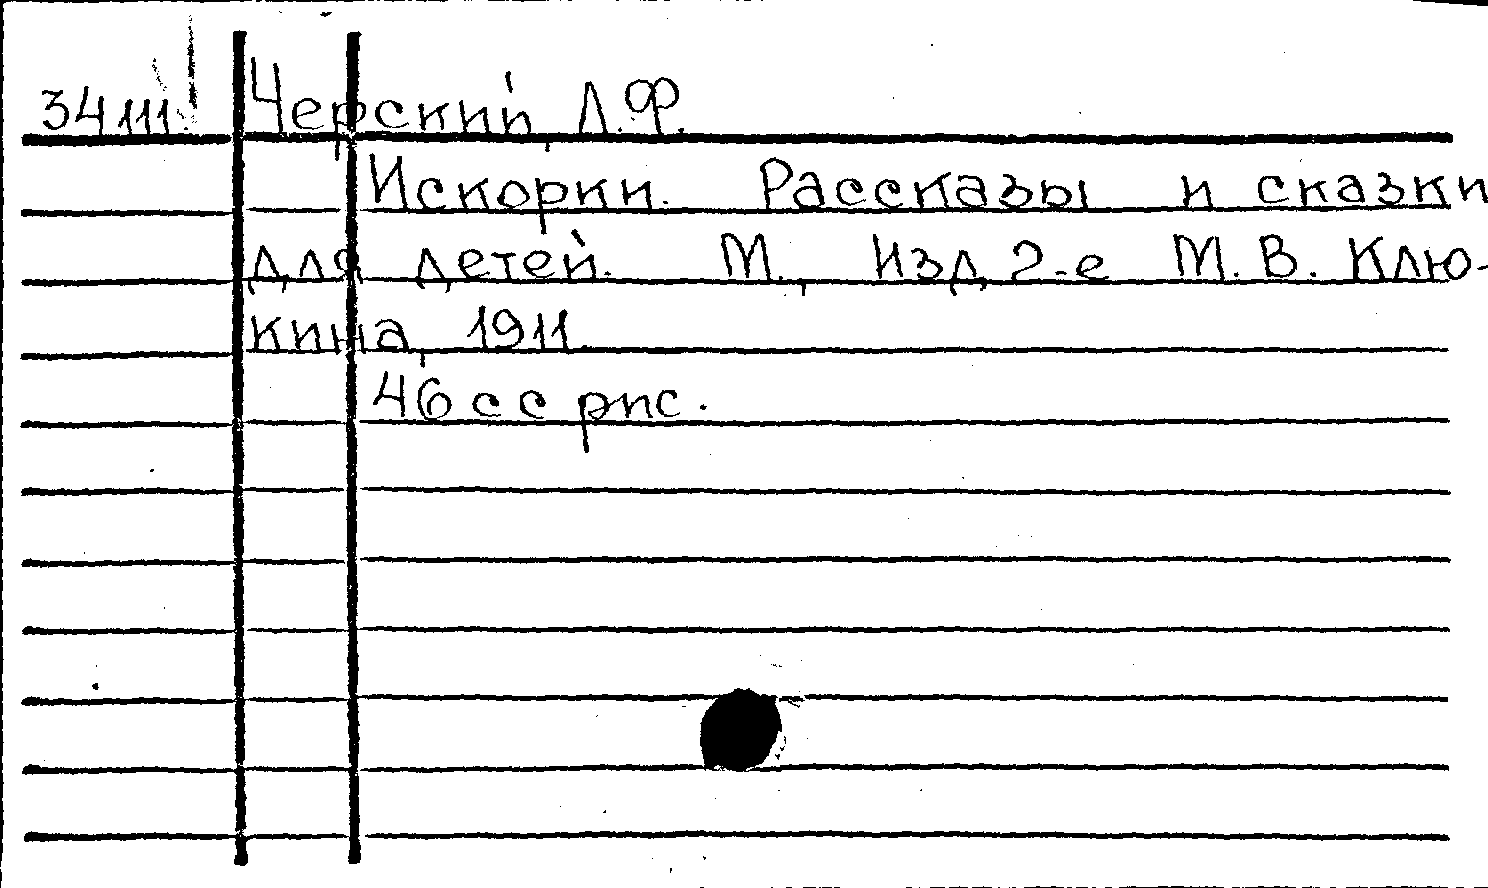 34111 Черский, Л.Ф.
Искорки. Рассказы и сказки
для детей. М., Изд. 2-е М. В. Клю-
кина, 1911.
46 с с рис.